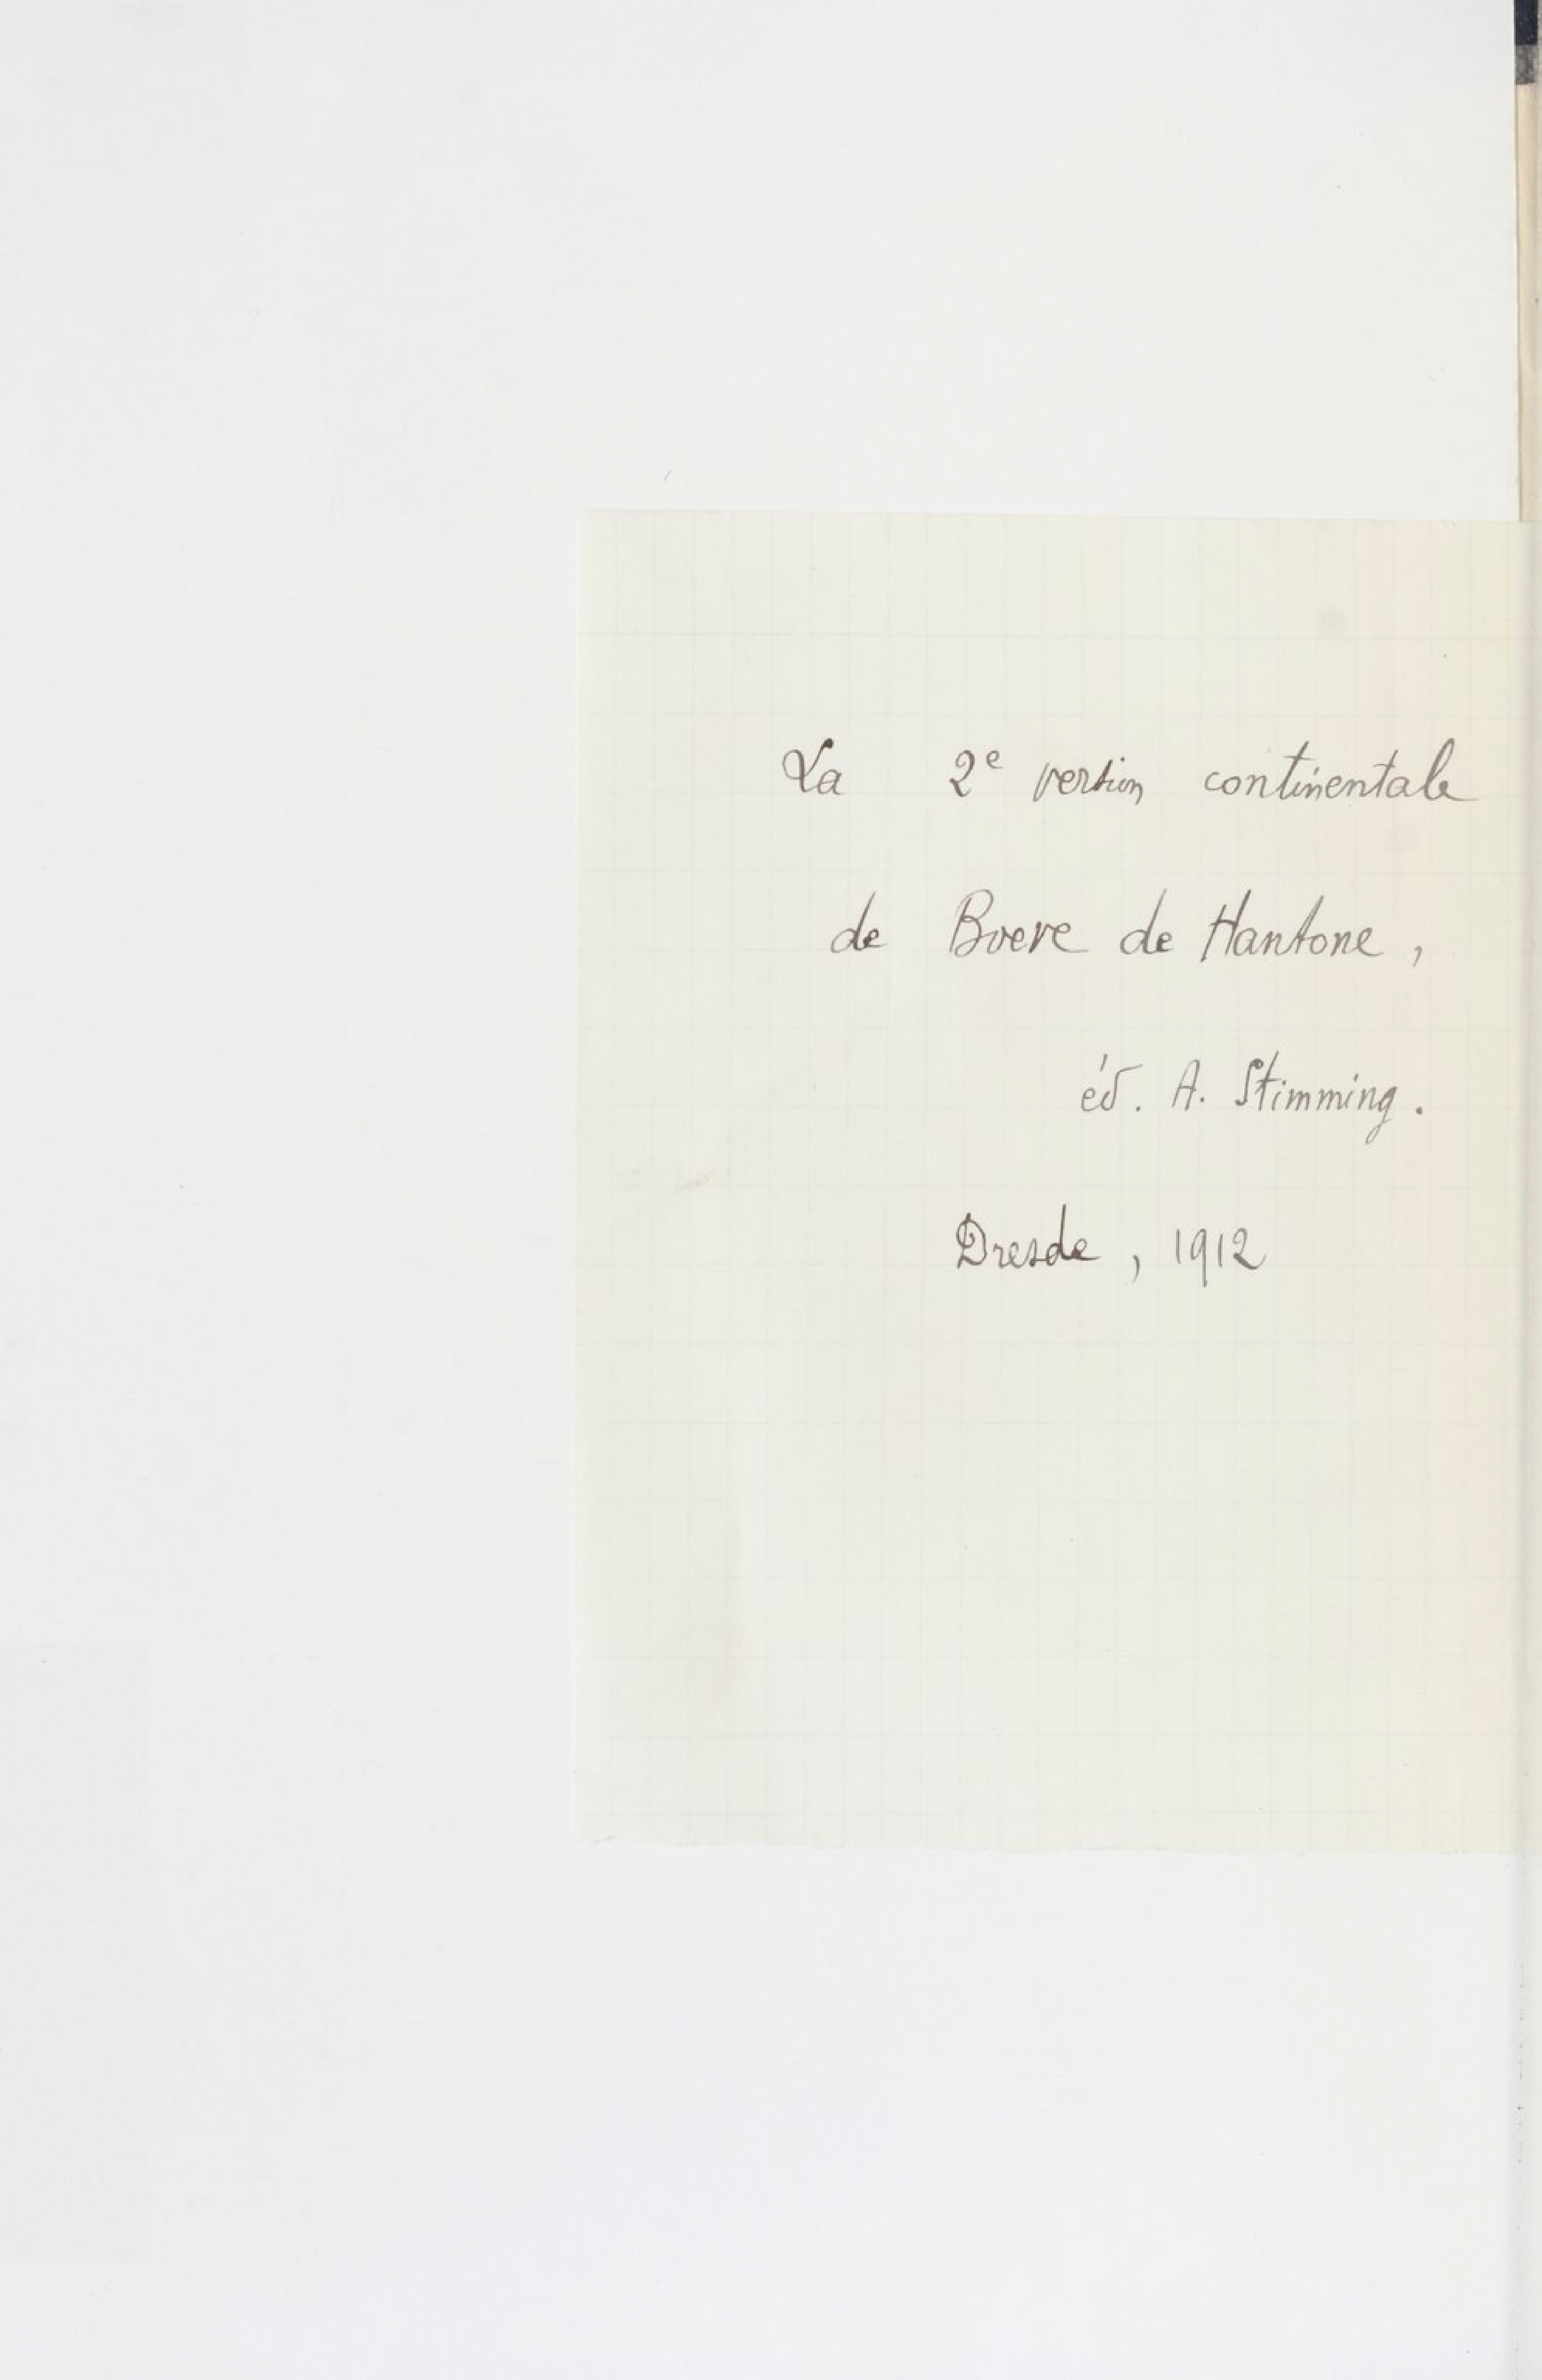 La 2e version continentale
de Boeve de Hantone,
éd. A. Stimming.
Dresde, 1912